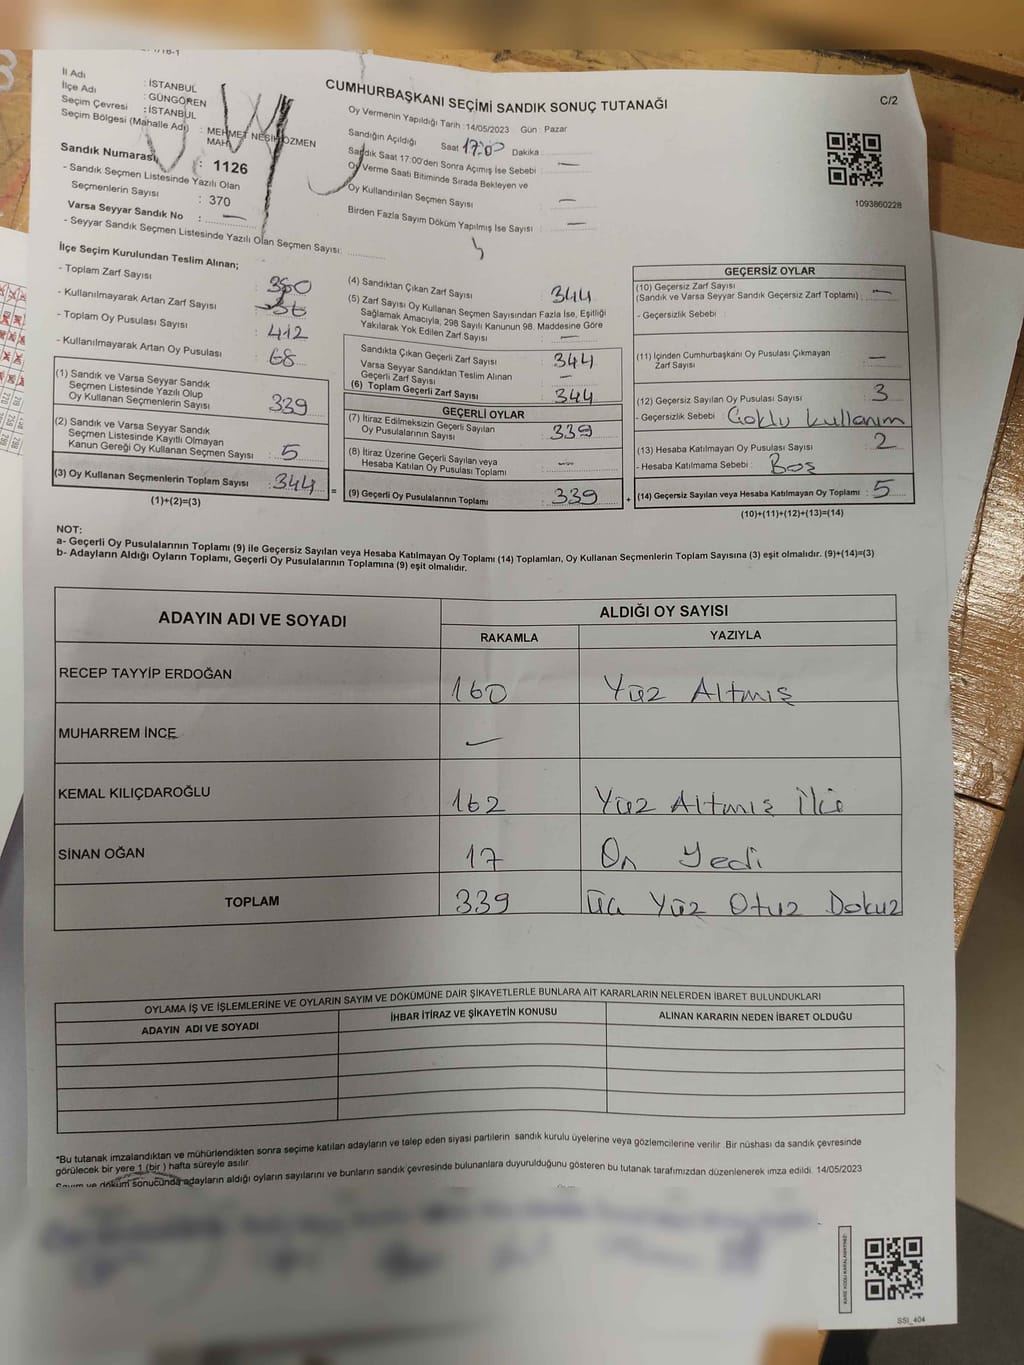 CUMHURBAŞKANI SEÇİMİ SANDIK SONUÇ TUTANAĞI
C/2
İl Adı : İSTANBUL
İlçe Adı : GÜNGÖREN
Seçim Çevresi : İSTANBUL
Seçim Bölgesi (Mahalle Adı) : MEHMET NESİH ÖZMEN MAH.
Sandık Numarası : 1126
- Sandık Seçmen Listesinde Yazılı Olan
Seçmenlerin Sayısı : 370
Varsa Seyyar Sandık No : —
- Seyyar Sandık Seçmen Listesinde Yazılı Olan Seçmen Sayısı:
Oy Vermenin Yapıldığı Tarih : 14/05/2023 Gün : Pazar
Sandığın Açıldığı Saat 17:00 Dakika
Sandık Saat 17:00'den Sonra Açımış İse Sebebi : —
Oy Verme Saati Bitiminde Sırada Bekleyen ve
Oy Kullandırılan Seçmen Sayısı : —
Birden Fazla Sayım Döküm Yapılmış İse Sayısı : —
1093860228
İlçe Seçim Kurulundan Teslim Alınan;
- Toplam Zarf Sayısı : 380
- Kullanılmayarak Artan Zarf Sayısı : 36
- Toplam Oy Pusulası Sayısı : 412
- Kullanılmayarak Artan Oy Pusulası : 68
(1) Sandık ve Varsa Seyyar Sandık
Seçmen Listesinde Yazılı Olup
Oy Kullanan Seçmenlerin Sayısı : 339
(2) Sandık ve Varsa Seyyar Sandık
Seçmen Listesinde Kayıtlı Olmayan
Kanun Gereği Oy Kullanan Seçmen Sayısı : 5
(3) Oy Kullanan Seçmenlerin Toplam Sayısı : 344
(1)+(2)=(3)
(4) Sandıktan Çıkan Zarf Sayısı : 344
(5) Zarf Sayısı Oy Kullanan Seçmen Sayısından Fazla İse, Eşitliği
Sağlamak Amacıyla, 298 Sayılı Kanunun 98. Maddesine Göre
Yakılarak Yok Edilen Zarf Sayısı : —
Sandıkta Çıkan Geçerli Zarf Sayısı : 344
Varsa Seyyar Sandıktan Teslim Alınan
Geçerli Zarf Sayısı : —
(6) Toplam Geçerli Zarf Sayısı : 344
GEÇERLİ OYLAR
(7) İtiraz Edilmeksizin Geçerli Sayılan
Oy Pusulalarının Sayısı : 339
(8) İtiraz Üzerine Geçerli Sayılan veya
Hesaba Katılan Oy Pusulası Toplamı : —
=
(9) Geçerli Oy Pusulalarının Toplamı : 339
+
GEÇERSİZ OYLAR
(10) Geçersiz Zarf Sayısı
(Sandık ve Varsa Seyyar Sandık Geçersiz Zarf Toplamı) : —
- Geçersizlik Sebebi :
(11) İçinden Cumhurbaşkanı Oy Pusulası Çıkmayan
Zarf Sayısı : —
(12) Geçersiz Sayılan Oy Pusulası Sayısı : 3
- Geçersizlik Sebebi : Çoklu kullanım
(13) Hesaba Katılmayan Oy Pusulası Sayısı : 2
- Hesaba Katılmama Sebebi : Boş
(14) Geçersiz Sayılan veya Hesaba Katılmayan Oy Toplamı : 5
(10)+(11)+(12)+(13)=(14)
NOT:
a- Geçerli Oy Pusulalarının Toplamı (9) ile Geçersiz Sayılan veya Hesaba Katılmayan Oy Toplamı (14) Toplamları, Oy Kullanan Seçmenlerin Toplam Sayısına (3) eşit olmalıdır. (9)+(14)=(3)
b- Adayların Aldığı Oyların Toplamı, Geçerli Oy Pusulalarının Toplamına (9) eşit olmalıdır.
ADAYIN ADI VE SOYADI
ALDIĞI OY SAYISI
RAKAMLA YAZIYLA
RECEP TAYYİP ERDOĞAN 160 Yüz Altmış
MUHARREM İNCE —
KEMAL KILIÇDAROĞLU 162 Yüz Altmış İki
SİNAN OĞAN 17 On Yedi
TOPLAM 339 Üç Yüz Otuz Dokuz
OYLAMA İŞ VE İŞLEMLERİNE VE OYLARIN SAYIM VE DÖKÜMÜNE DAİR ŞİKAYETLERLE BUNLARA AİT KARARLARIN NELERDEN İBARET BULUNDUKLARI
ADAYIN ADI VE SOYADI İHBAR İTİRAZ VE ŞİKAYETİN KONUSU ALINAN KARARIN NEDEN İBARET OLDUĞU
*Bu tutanak imzalandıktan ve mühürlendikten sonra seçime katılan adayların ve talep eden siyasi partilerin sandık kurulu üyelerine veya gözlemcilerine verilir. Bir nüshası da sandık çevresinde
görülecek bir yere 1 (bir) hafta süreyle asılır.
Sayım ve döküm sonucunda adayların aldığı oyların sayılarını ve bunların sandık çevresinde bulunanlara duyurulduğunu gösteren bu tutanak tarafımızdan düzenlenerek imza edildi. 14/05/2023
SSİ_404